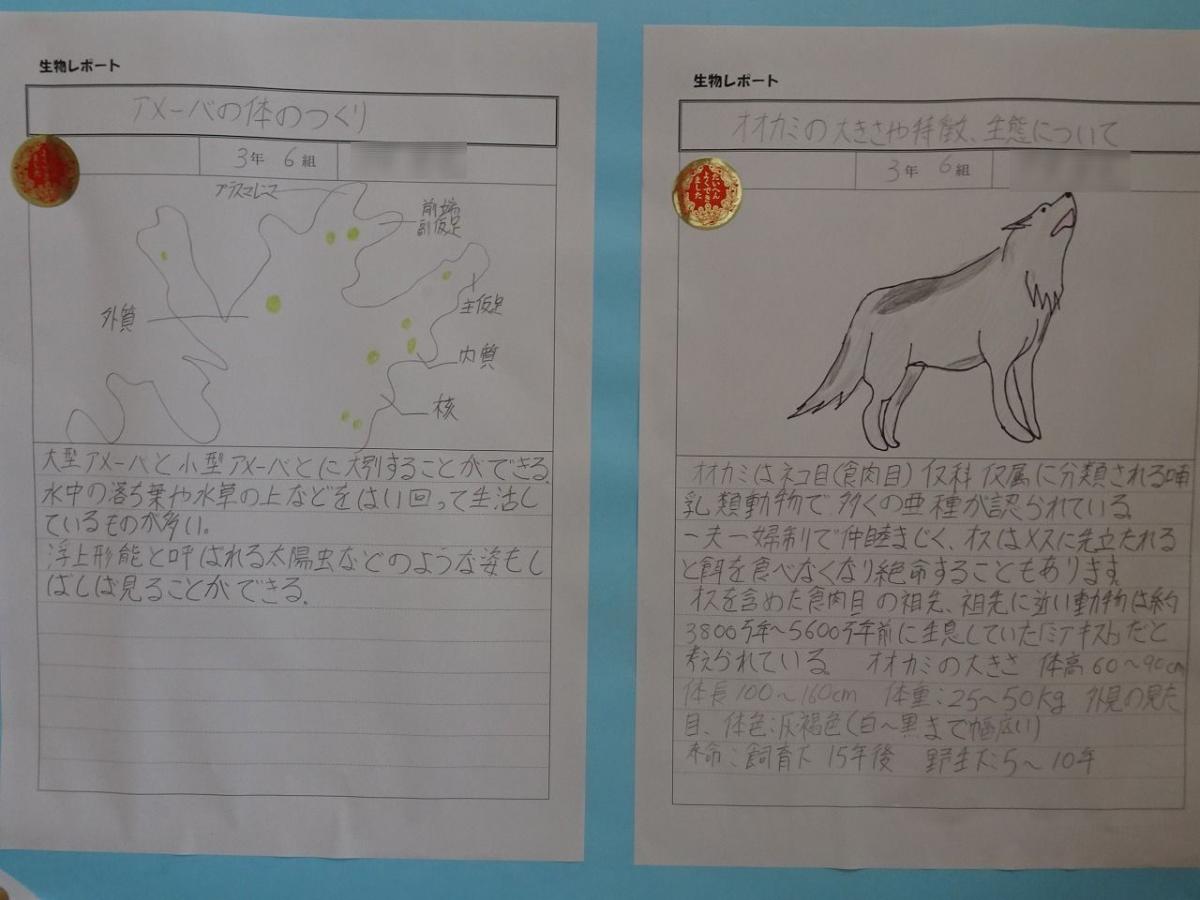 生物レポート
アメーバの体のつくり
3年 6組
プラスマレンマ
前端
副仮足
外質
主仮足
内質
核
大型アメーバと小型アメーバとに大別することができる.
水中の落ち葉や水草の上などをはい回って生活し
ているものが多い。
浮上形能と呼ばれる太陽虫などのような姿もし
ばしば見ることができる.
生物レポート
オオカミの大きさや特徴、生態について
3年 6組
たいへん
よくでき
ました
オオカミはネコ目(食肉目) イヌ科イヌ属に分類される哺
乳類動物で多くの亜種が認られている
一夫一婦制で仲睦まじく、オスはメスに先立たれる
と餌を食べなくなり絶命することもあります
オスを含めた食肉目の祖先、祖先に近い動物は約
3800万年~5600万年前に生息していた「ミアキス」だと
考えられている オオカミの大きさ 体高60~90cm
体長100~160cm 体重:25~50kg 外見の見た
目、体色:灰褐色(白~黒まで幅広い)
命:飼育下 15年後 野生下:5~10年